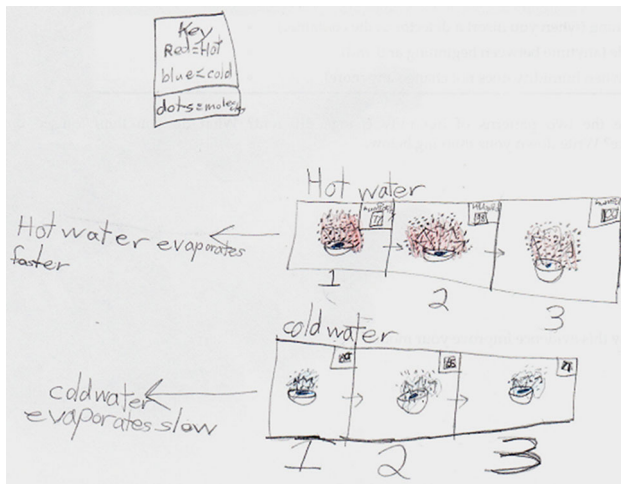 Key
Red=Hot
blue=cold
dots=molecules
Hot water
Hot water evaporates
faster
1
2
3
cold water
cold water
evaporates slow
1
2
3